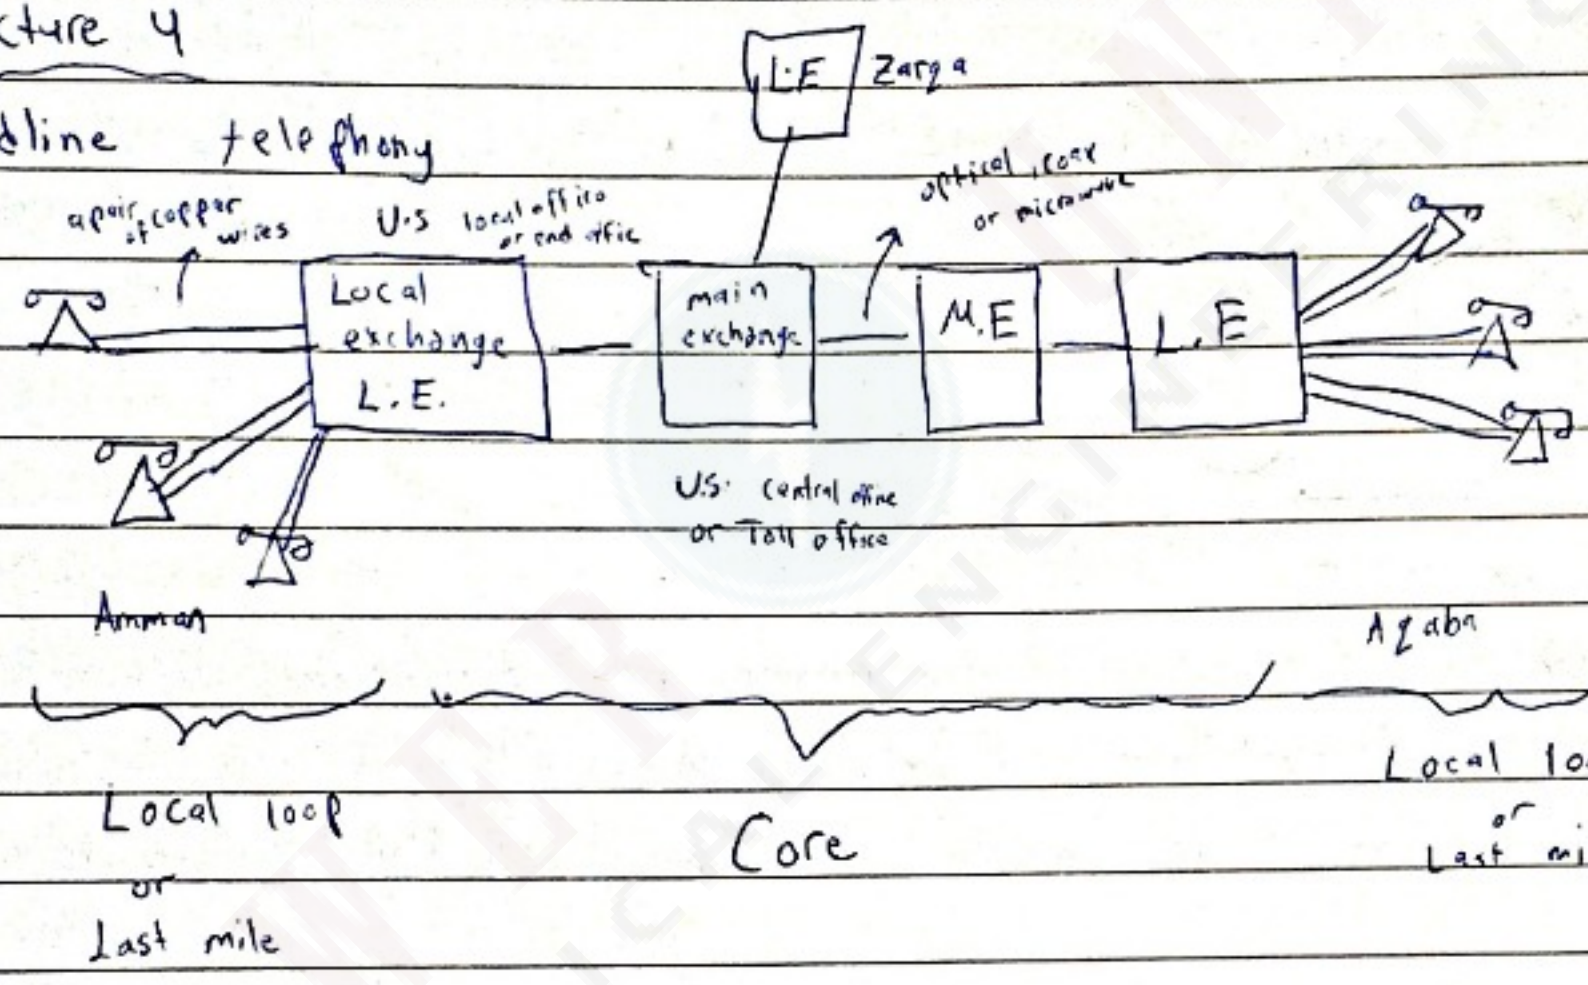 cture 4
dline telephony
L.E Zarqa
a pair of copper wires
U.S local office
or end office
optical, coax
or microwave
Local
exchange
L.E.
main
exchange
M.E
L.E
U.S. central office
or Toll office
Amman
Aqaba
Local loop
or
Last mile
Core
Local lo
or
Last mi
WER
ICAL ENGINEERING